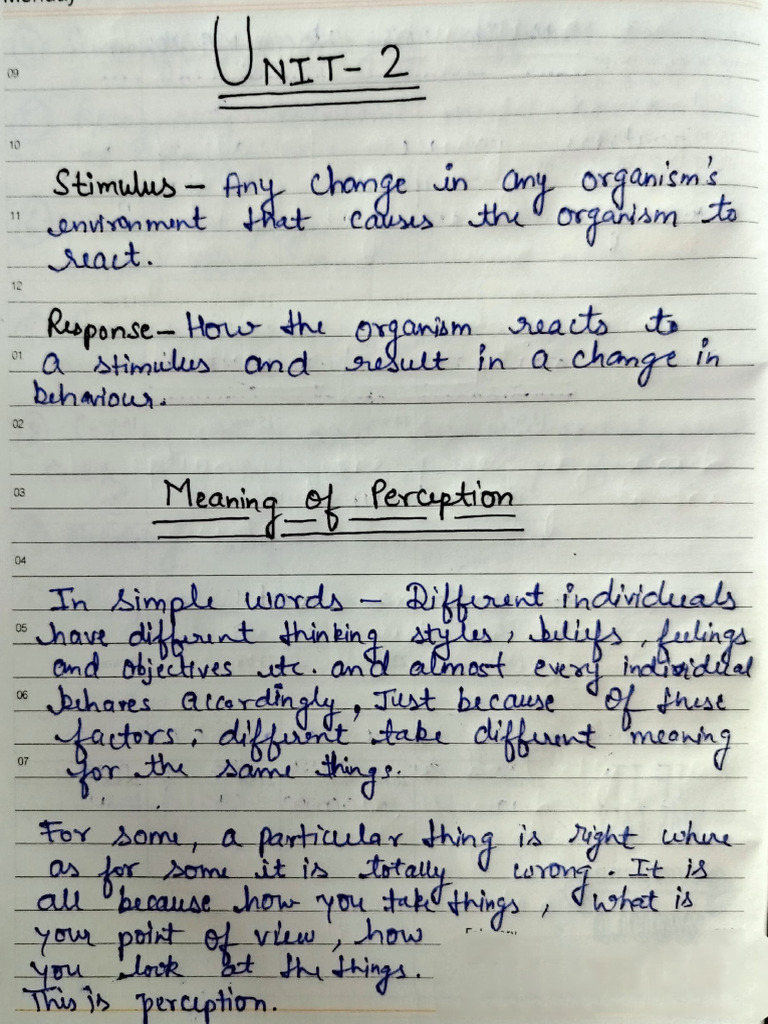 UNIT-2
09
10
Stimulus - Any change in any organism's
11 environment that causes the organism to
react.
12
Response - How the organism reacts to
01 a stimulus and result in a change in
behaviour.
02
03 Meaning of Perception
04
In simple words - Different individuals
05 have different thinking styles, beliefs, feelings
and objectives etc. and almost every individual
06 behaves accordingly, Just because of these
factors, different take different meaning
07 for the same things.
For some, a particular thing is right where
as for some it is totally wrong. It is
all because how you take things, what is
your point of view, how
you look at the things.
This is perception.